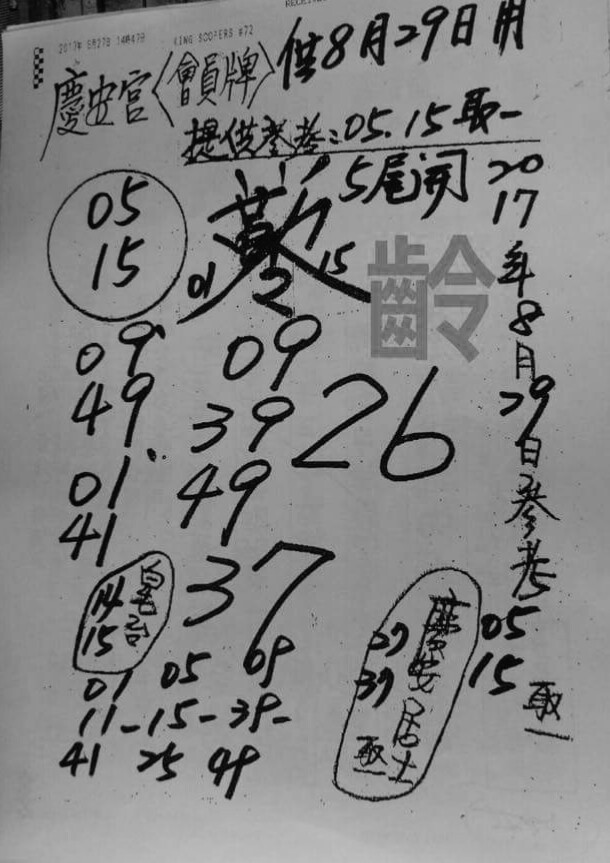 2017年 8月27日 14時47分 KING SOOPERS #72
慶安宮〈會員牌〉供8月29日用
提供參考:05.15取一
5尾開
05
15
01
15
齡
09
49
01
41
09
39
49
26
37
14
15
01 05 09
11-15-39-
41 25 49
慶安居士
29
39
取一
2017年8月29日參考
05
15
取一